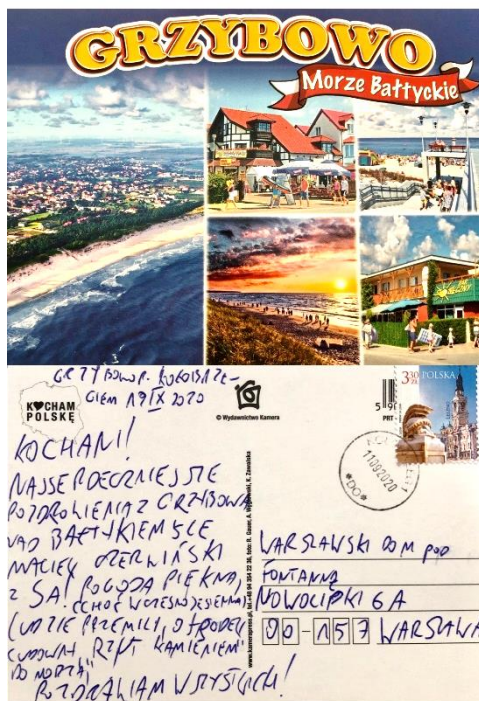 GRZYBOWO
Morze Bałtyckie
GRZYBOWO P. KOŁOBRZE-
GIEM 19 IX 2020
KOCHAM
POLSKĘ
© Wydawnictwo Kamera
3,30
ZŁ
POLSKA
11092020
*DO*
KOCHANI!
NAJSERDECZNIEJSZE
POZDROWIENIA Z GRZYBOWA
NAD BAŁTYKIEM ŚLE
MACIEJ CZERWIŃSKI
Z SA! POGODA PIĘKNA,
(CHOĆ WCZESNOJESIENNA)
LUDZIE PRZEMILI, OŚRODEK
CUDOWNY, RZUT KAMIENIEM
DO MORZA!
POZDRAWIAM WSZYSTKICH!
WARSZAWSKI DOM POD
FONTANNĄ
NOWOLIPKI 6A
00-157 WARSZAWA